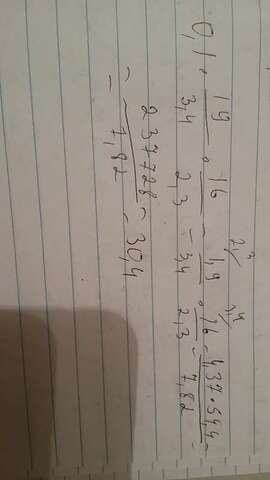 0,1 · 19/3,4 · 16/2,3 = 1,9/3,4 · 16/2,3 = 4,37 · 54,4/7,82 =
= 237728/7,82 = 30,4